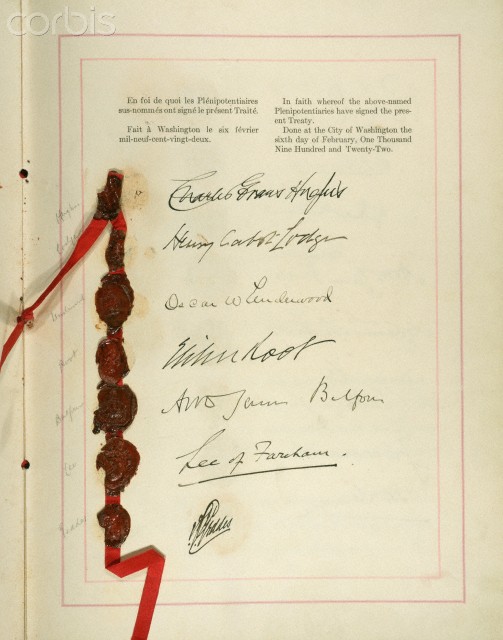 corbis
En foi de quoi les Plénipotentiaires
sus-nommés ont signé le présent Traité.
Fait à Washington le six février
mil-neuf-cent-vingt-deux.
In faith whereof the above-named
Plenipotentiaries have signed the pres-
ent Treaty.
Done at the City of Washington the
sixth day of February, One Thousand
Nine Hundred and Twenty-Two.
Hughes
Lodge
Underwood
Root
Balfour
Lee
Geddes
Charles Evans Hughes
Henry Cabot Lodge
Oscar W Underwood
Elihu Root
Arthur James Balfour
Lee of Fareham.